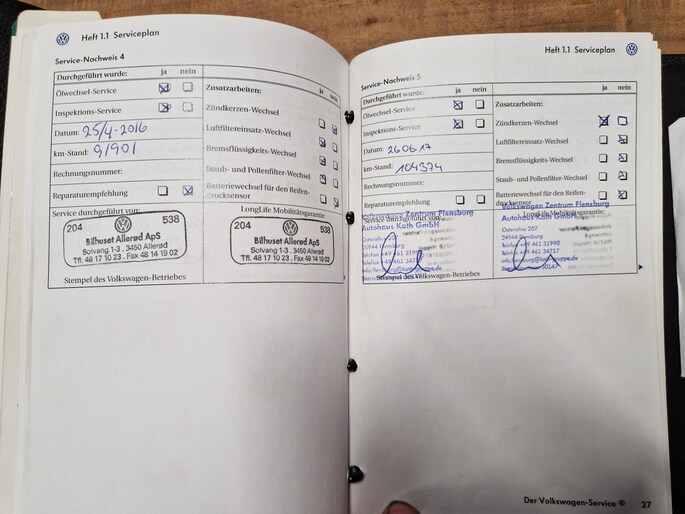 Heft 1.1 Serviceplan
Service-Nachweis 4
Durchgeführt wurde: ja nein
Ölwechsel-Service
Inspektions-Service
Datum: 25/4-2016
km-Stand: 91901
Rechnungsnummer:
Reparaturempfehlung
Service durchgeführt von:
204 538
Bilhuset Allerød ApS
Solvang 1-3 . 3450 Allerød
Tlf. 48 17 10 23 . Fax 48 14 19 02
Stempel des Volkswagen-Betriebes
ja nein
Zusatzarbeiten:
Zündkerzen-Wechsel
Luftfiltereinsatz-Wechsel
Bremsflüssigkeits-Wechsel
Staub- und Pollenfilter-Wechsel
Batteriewechsel für den Reifen-
drucksensor
LongLife Mobilitätsgarantie:
204 538
Bilhuset Allerød ApS
Solvang 1-3 . 3450 Allerød
Tlf. 48 17 10 23 . Fax 48 14 19 02
Heft 1.1 Serviceplan
Service-Nachweis 5
Durchgeführt wurde: ja nein
Ölwechsel-Service
Inspektions-Service
Datum: 260617
km-Stand: 104374
Rechnungsnummer:
Reparaturempfehlung
Service durchgeführt von:
Volkswagen Zentrum Flensburg
Autohaus Kath GmbH
24944 Flensburg
Stempel des Volkswagen-Betriebes
ja nein
Zusatzarbeiten:
Zündkerzen-Wechsel
Luftfiltereinsatz-Wechsel
Bremsflüssigkeits-Wechsel
Staub- und Pollenfilter-Wechsel
Batteriewechsel für den Reifen-
drucksensor
LongLife Mobilitätsgarantie:
Volkswagen Zentrum Flensburg
Autohaus Kath GmbH
Osterallee 207
24944 Flensburg
Telefon +49 461 31990
Telefax +49 461 34717
Der Volkswagen-Service ® 27